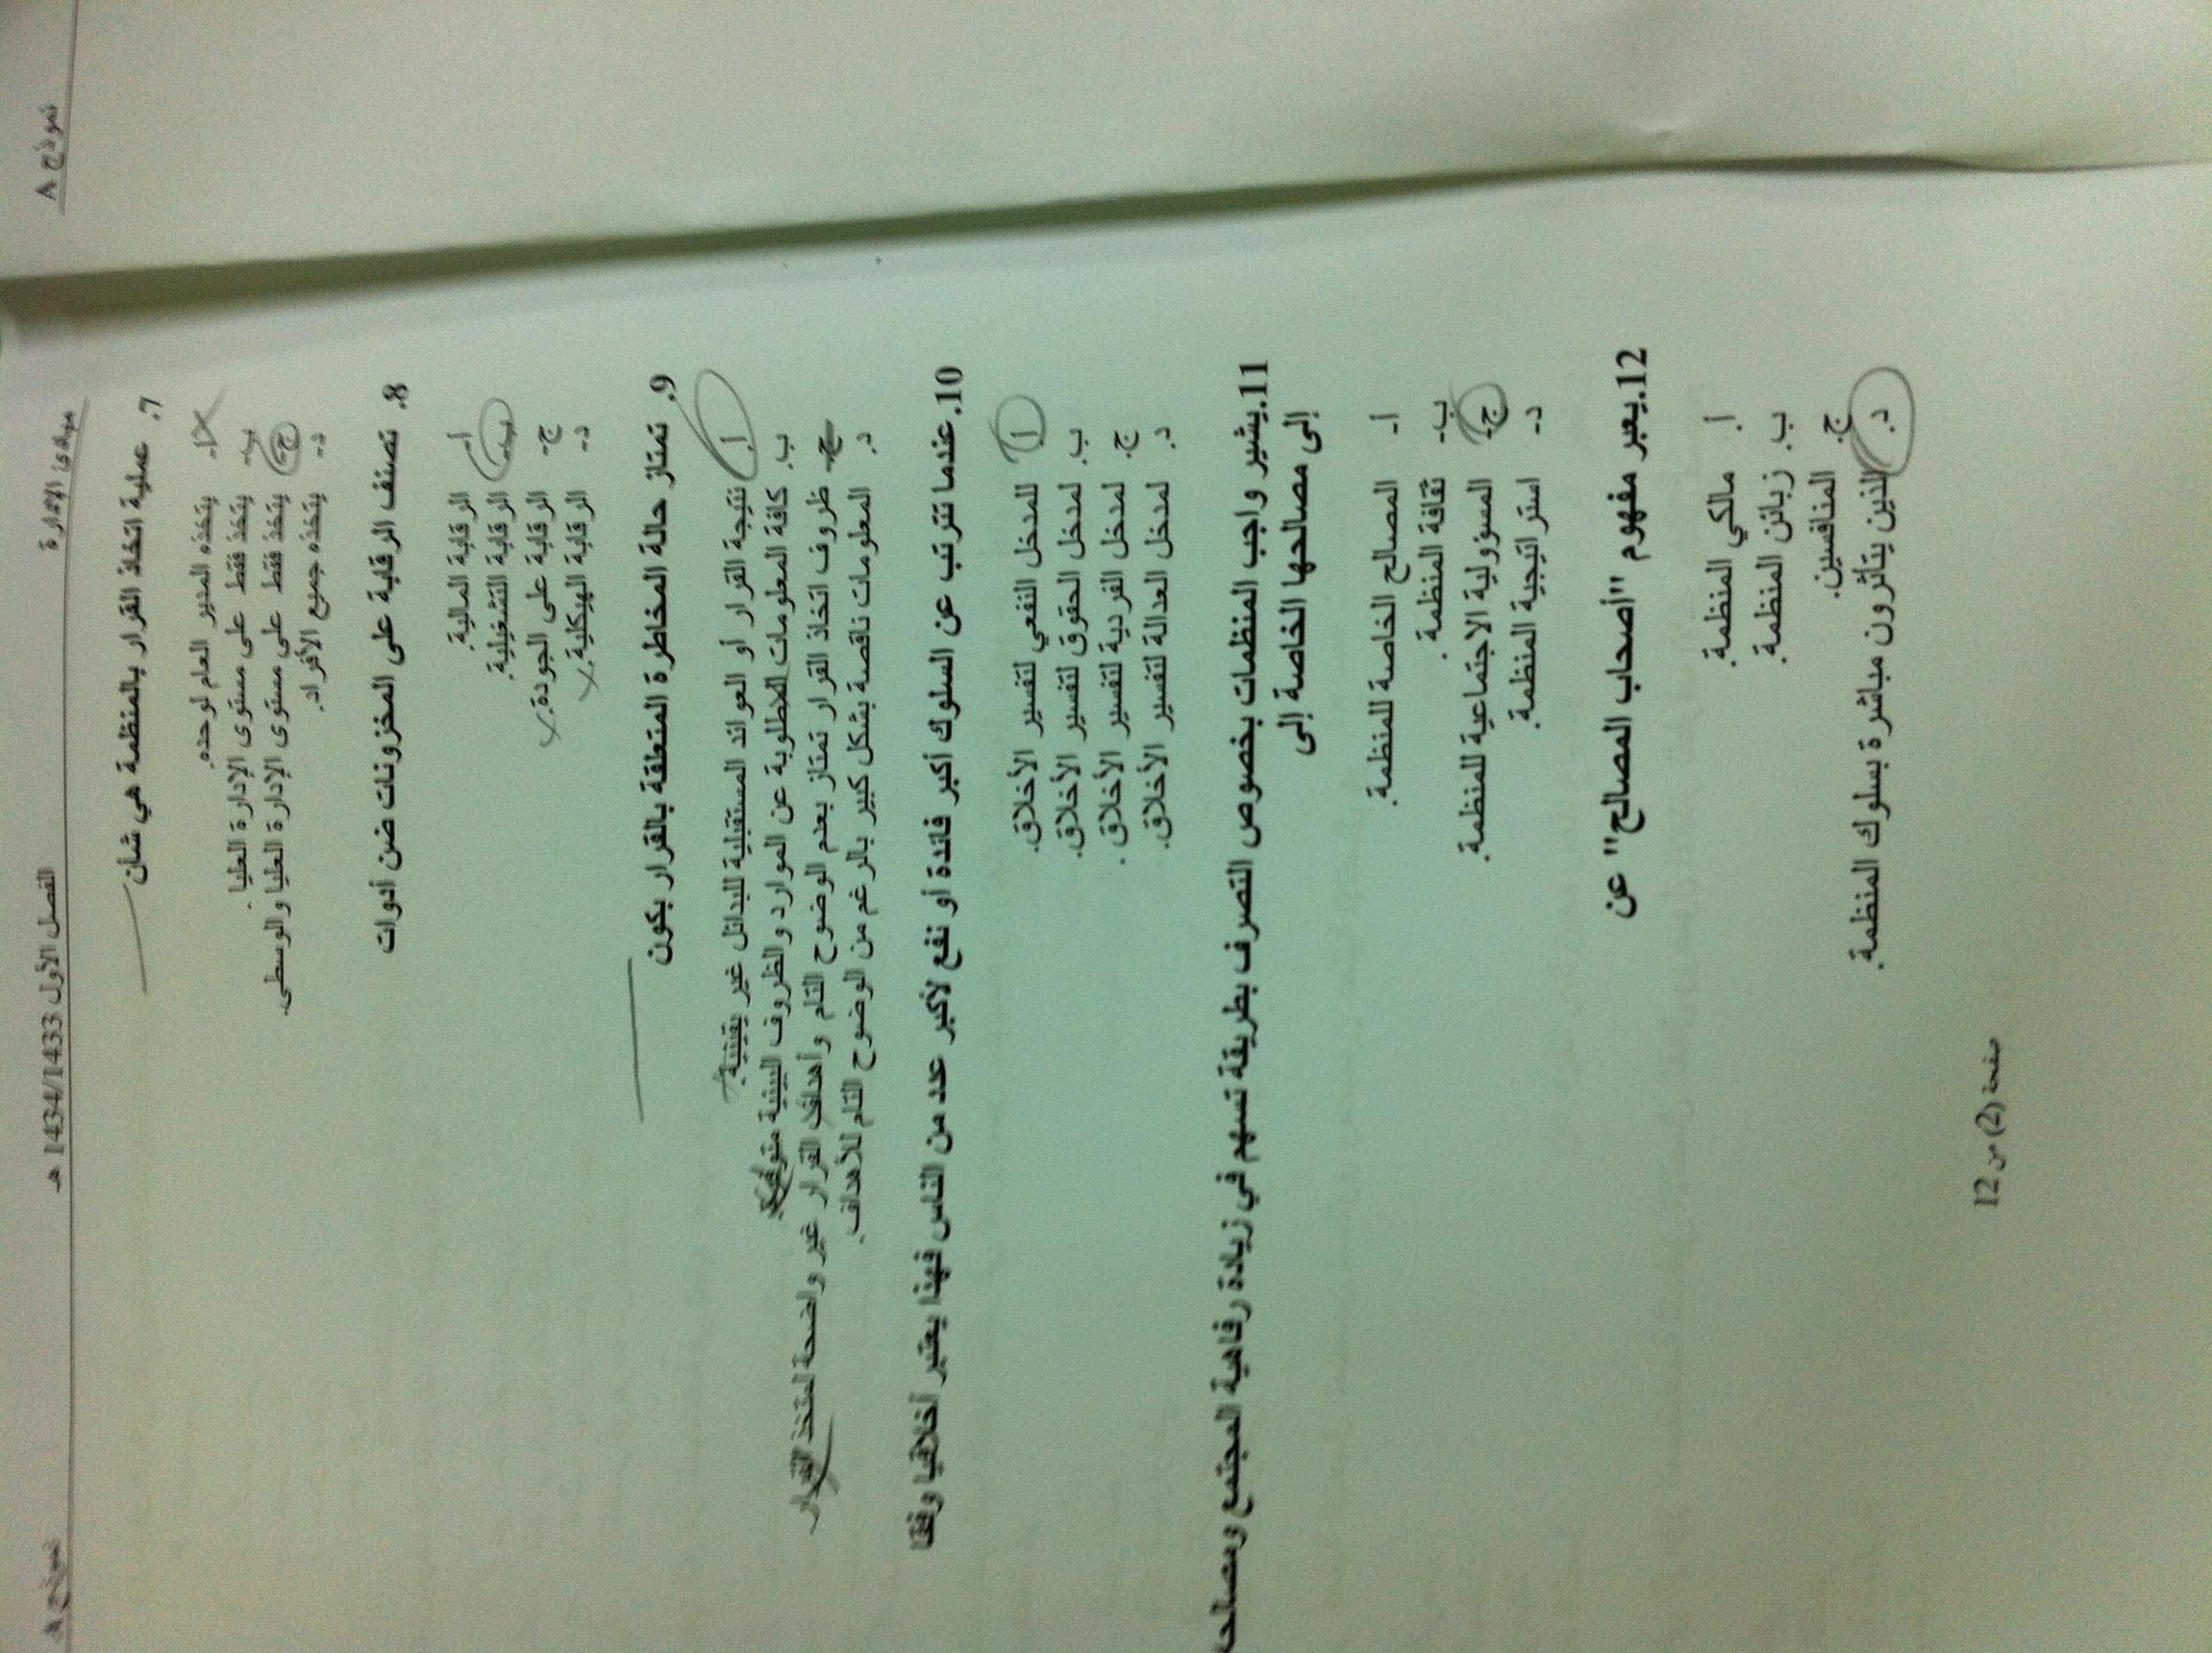 مبادئ الإدارة الفصل الأول 1434/1433 هـ نموذج ٨
نموذج ٨
7. عملية اتخاذ القرار بالمنظمة هي شأن
أ- يتخذه المدير العام لوحده.
ب- يتخذ فقط على مستوى الإدارة العليا.
ج- يتخذ فقط على مستوى الإدارة العليا والوسطى.
د- يتخذه جميع الأفراد.
8. تصنف الرقابة على المخزونات ضمن أدوات
أ- الرقابة المالية.
ب- الرقابة التشغيلية.
ج- الرقابة على الجودة.
د- الرقابة الهيكلية.
9. تمتاز حالة المخاطرة المتعلقة بالقرار بكون
أ. نتيجة القرار أو العوائد المستقبلية للبدائل غير يقينية.
ب. كافة المعلومات المطلوبة عن الموارد والظروف البيئية متوفرة.
ج. ظروف اتخاذ القرار تمتاز بعدم الوضوح التام وأهداف القرار غير واضحة لمتخذ القرار.
د. المعلومات ناقصة بشكل كبير بالرغم من الوضوح التام للأهداف.
10. عندما تترتب عن السلوك أكبر فائدة أو نفع لأكبر عدد من الناس فهذا يعتبر أخلاقيا وفقا
أ. للمدخل النفعي لتفسير الأخلاق.
ب. لمدخل الحقوق لتفسير الأخلاق.
ج. لمدخل الفردية لتفسير الأخلاق .
د. لمدخل العدالة لتفسير الأخلاق.
11. يشير واجب المنظمات بخصوص التصرف بطريقة تسهم في زيادة رفاهية المجتمع ومصالحه
إلى مصالحها الخاصة إلى
أ- المصالح الخاصة للمنظمة.
ب- ثقافة المنظمة .
ج- المسؤولية الاجتماعية للمنظمة.
د- استراتيجية المنظمة.
12. يعبر مفهوم "أصحاب المصالح" عن
أ. مالكي المنظمة.
ب. زبائن المنظمة.
ج. المنافسين.
د. الذين يتأثرون مباشرة بسلوك المنظمة.
صفحة (2) من 12